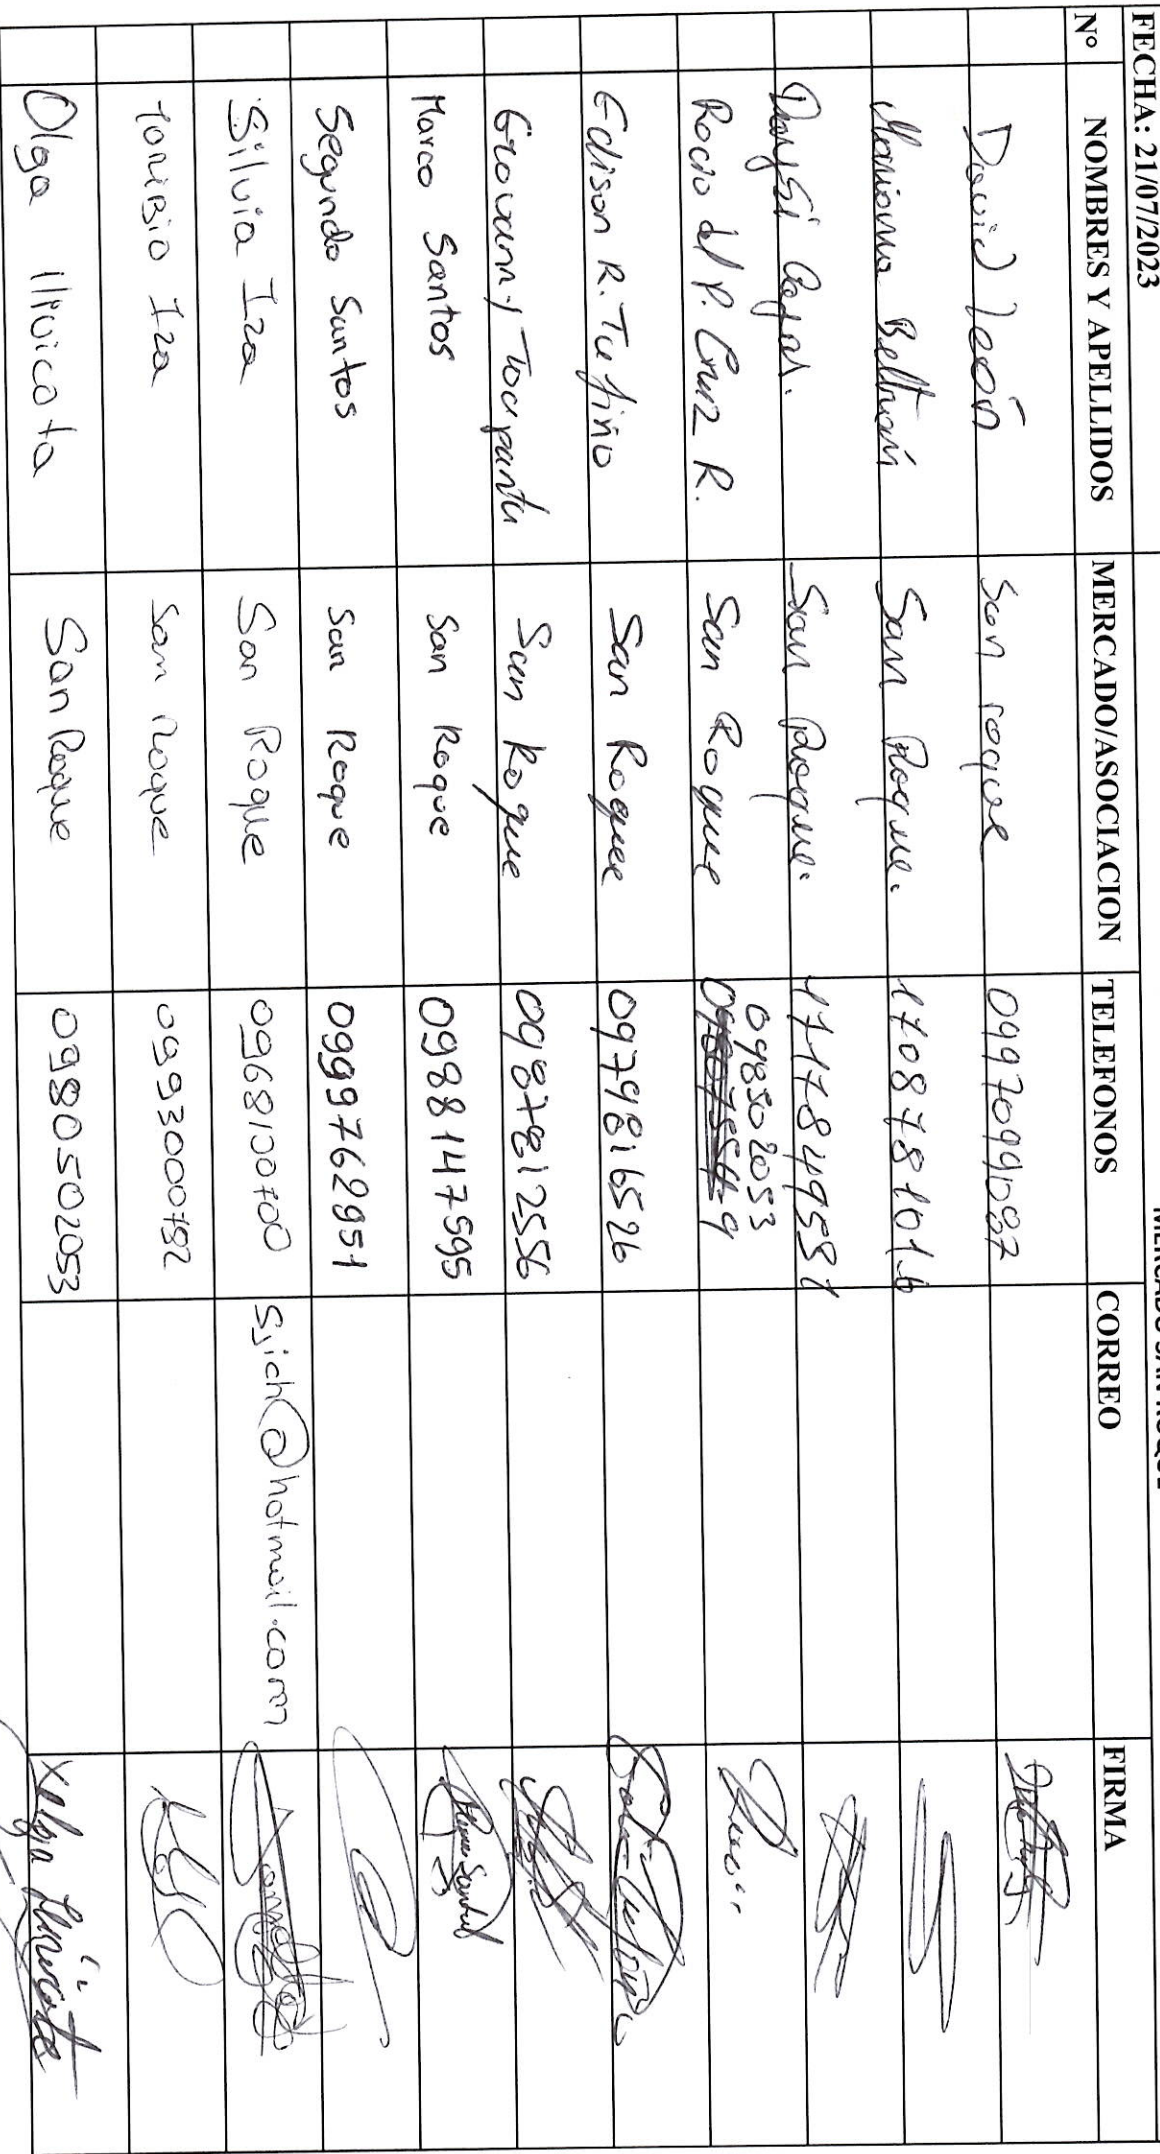 MERCADO SAN ROQUE
FECHA: 21/07/2023
N° NOMBRES Y APELLIDOS MERCADO/ASOCIACION TELEFONOS CORREO FIRMA
David león San roque 0997099087
Mariana Beltrán San Roque. 1708781016
Daysi San Roque. 1717849581
Rocio del P. Cruz R. San Roque 098302053
Edison R. Tufiño San Roque 0979816526
Giovanny Toapanta San Roque 0987812556
Marco Santos San Roque 0988147595 Marco Santos
Segundo Santos San Roque 0999762951
Silvia Iza San Roque 0968100700 Sjich@hotmail.com
TORIBIO Iza San Roque 0993000782
Olga Llivicota San Roque 0980502053